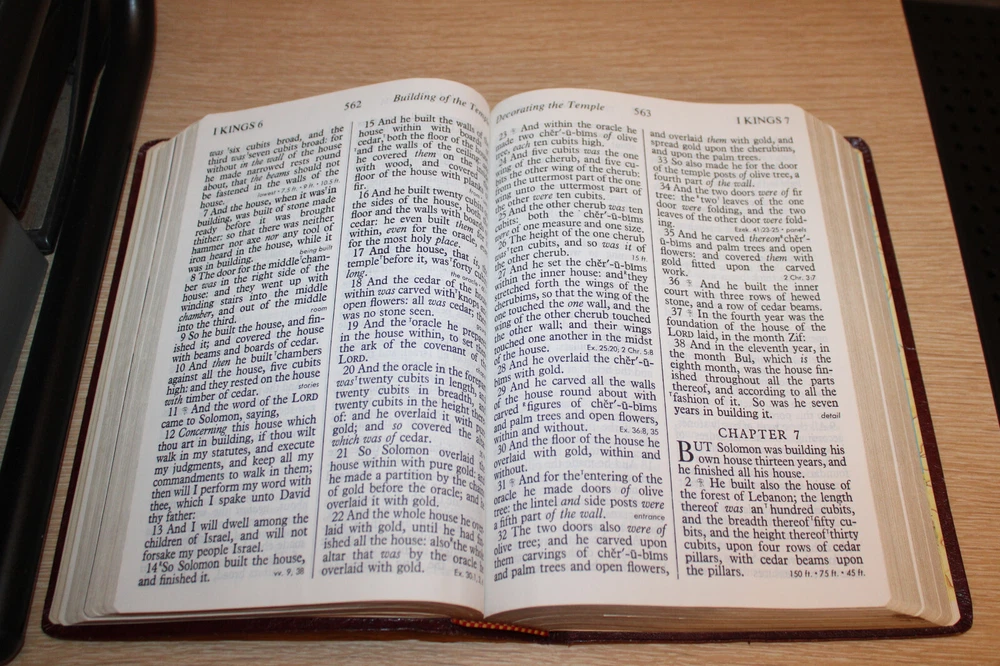 I KINGS 6
562
Building of the
was six cubits broad, and the
third was seven cubits broad: for
without in the wall of the house
he made narrowed rests round
about, that the beams should not
be fastened in the walls of the
house.
7.5 ft. • 9 ft. • 10.5 ft.
7 And the house, when it was in
building, was built of stone made
ready before it was brought
thither: so that there was neither
hammer nor axe nor any tool of
iron heard in the house, while it
was in building.
being built
8 The door for the middle cham-
ber was in the right side of the
house: and they went up with
winding stairs into the middle
chamber, and out of the middle
into the third.
room
9 So he built the house, and fin-
ished it; and covered the house
with beams and boards of cedar.
10 And then he built chambers
against all the house, five cubits
high: and they rested on the house
with timber of cedar.
stories
11 And the word of the LORD
came to Solomon, saying,
12 Concerning this house which
thou art in building, if thou wilt
walk in my statutes, and execute
my judgments, and keep all my
commandments to walk in them;
then will I perform my word with
thee, which I spake unto David
thy father:
13 And I will dwell among the
children of Israel, and will not
forsake my people Israel.
14 So Solomon built the house,
and finished it.
vv. 9, 38
15 And he built the walls of
house within with boards
cedar, both the floor of the
and the walls of the
he covered them on
with wood, and covered
floor of the house with
fir.
16 And he built twenty
the sides of the house, both
floor and the walls with
cedar: he even built them
within, even for the oracle,
for the most holy place.
17 And the house, that is,
temple before it, was forty
long.
18 And the cedar of the
within was carved with knops
open flowers: all was cedar;
was no stone seen.
19 And the oracle he
in the house within, to set
the ark of the covenant of
LORD.
20 And the oracle in the
was twenty cubits in length, and
twenty cubits in breadth, and
twenty cubits in the height
of: and he overlaid it with
gold; and so covered the
which was of cedar.
21 So Solomon overlaid
house within with pure gold:
he made a partition by the
of gold before the oracle; and
overlaid it with gold.
22 And the whole house he
laid with gold, until he had
ished all the house: also the whole
altar that was by the oracle
overlaid with gold.
Ex. 30:1,
Decorating the Temple
563
I KINGS 7
23 And within the oracle he
made two chĕr'-ū-bims of olive
tree, each ten cubits high.
24 And five cubits was the one
wing of the cherub, and five cu-
bits the other wing of the cherub:
from the uttermost part of the one
wing unto the uttermost part of
the other were ten cubits.
25 And the other cherub was ten
cubits: both the chĕr'-ū-bims
were of one measure and one size.
26 The height of the one cherub
was ten cubits, and so was it of
the other cherub.
15 ft.
27 And he set the chĕr'-ū-bims
within the inner house: and they
stretched forth the wings of the
cherubims, so that the wing of the
one touched the one wall, and the
wing of the other cherub touched
the other wall; and their wings
touched one another in the midst
of the house.
Ex. 25:20; 2 Chr. 5:8
28 And he overlaid the chĕr'-ū-
bims with gold.
29 And he carved all the walls
of the house round about with
carved figures of chĕr'-ū-bims
and palm trees and open flowers,
within and without.
Ex. 36:8, 35
30 And the floor of the house he
overlaid with gold, within and
without.
31 And for the entering of the
oracle he made doors of olive
tree: the lintel and side posts were
a fifth part of the wall.
entrance
32 The two doors also were of
olive tree; and he carved upon
them carvings of chĕr'-ū-bims
and palm trees and open flowers,
and overlaid them with gold, and
spread gold upon the cherubims,
and upon the palm trees.
33 So also made he for the door
of the temple posts of olive tree, a
fourth part of the wall.
34 And the two doors were of fir
tree: the two leaves of the one
door were folding, and the two
leaves of the other door were fold-
ing.
Ezek. 41:23-25 • panels
35 And he carved thereon chĕr'-
ū-bims and palm trees and open
flowers: and covered them with
gold fitted upon the carved
work.
2 Chr. 3:7
36 And he built the inner
court with three rows of hewed
stone, and a row of cedar beams.
37 In the fourth year was the
foundation of the house of the
LORD laid, in the month Zif:
38 And in the eleventh year, in
the month Bul, which is the
eighth month, was the house fin-
ished throughout all the parts
thereof, and according to all the
fashion of it. So was he seven
years in building it.
detail
CHAPTER 7
BUT Solomon was building his
own house thirteen years, and
he finished all his house.
2 He built also the house of
the forest of Lebanon; the length
thereof was an hundred cubits,
and the breadth thereof fifty cu-
bits, and the height thereof thirty
cubits, upon four rows of cedar
pillars, with cedar beams upon
the pillars.
150 ft. • 75 ft. • 45 ft.